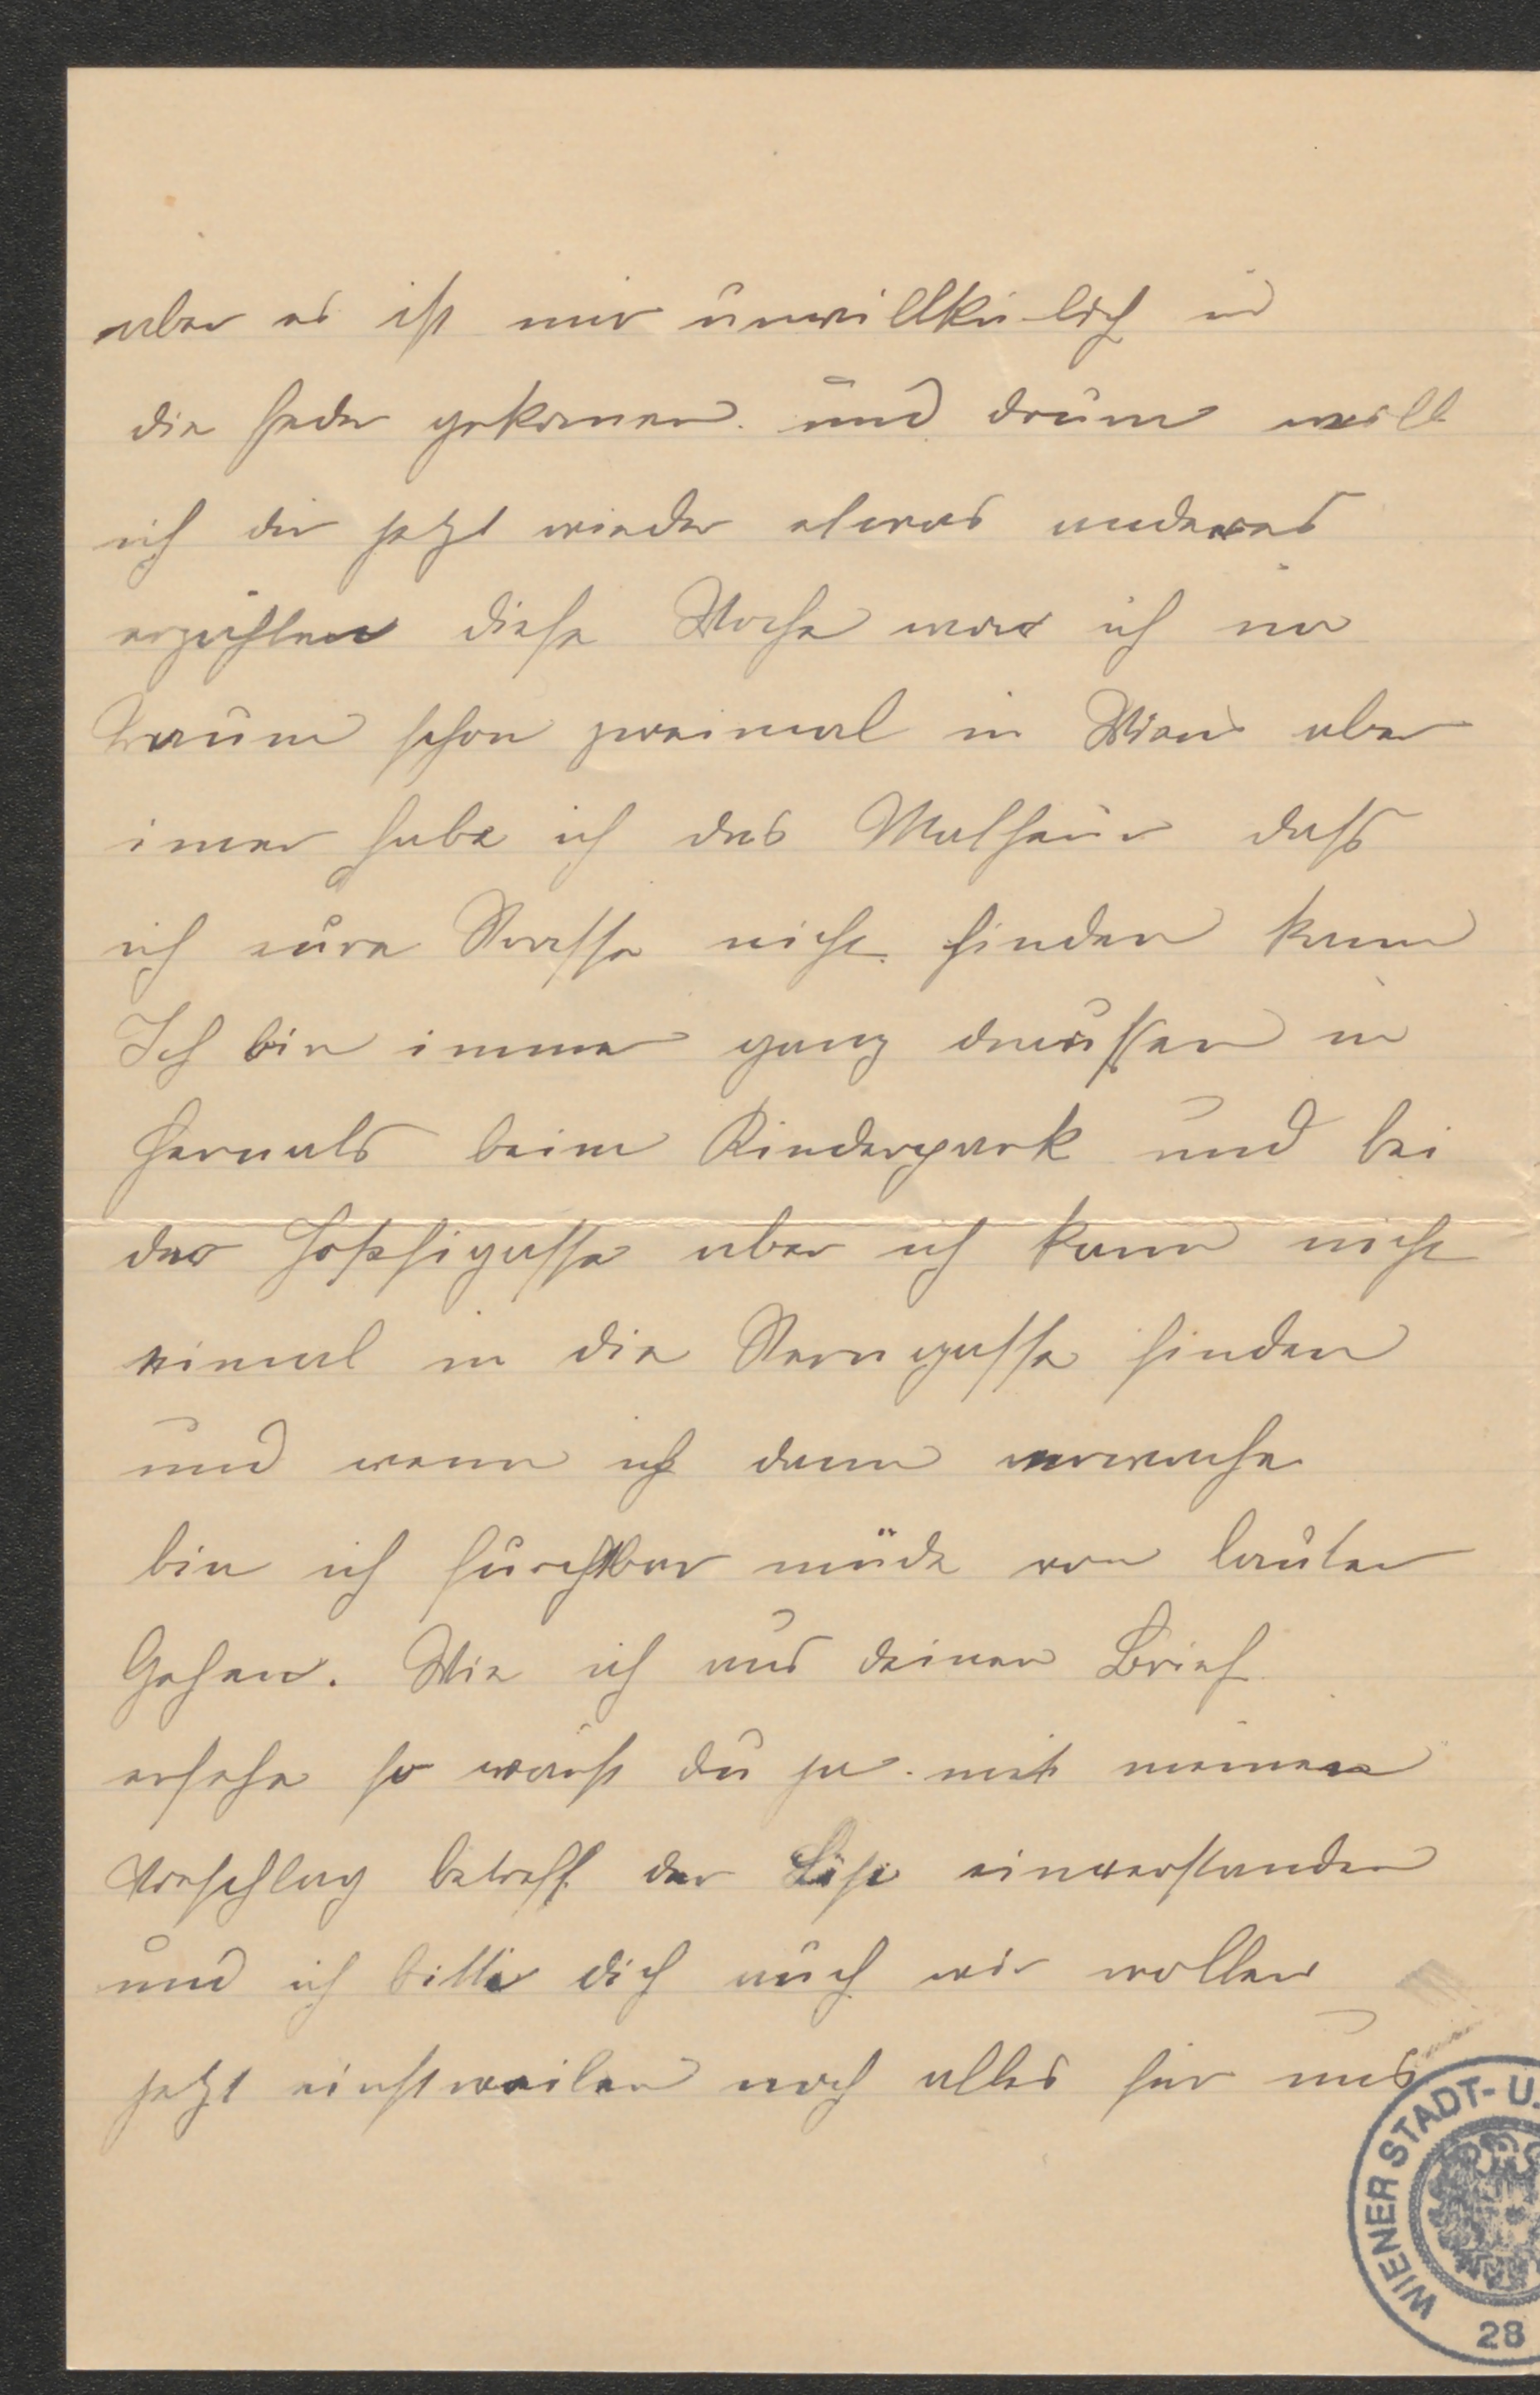 aber es ist mir unwillkürlich in
die Feder gekomen und drum will
ich dir jetzt wieder etwas anderes
erzählen diese Woche war ich im
Traum schon zweimal in Wien aber
imer habe ich das Malheur dass
ich eure Strasse nicht finden kann
Ich bin immer ganz draussen in
Hernals beim Kinderpark und bei
der aber ich kann nicht
einmal in die Sterngasse finden
und wenn ich dann erwache
bin ich furchtbar müde von lauter
Gehen. Wie ich aus deinen Brief
ersehe so wärst du ja mit meinen
Vorschlag betreff der einverstanden
und ich bitte dich auch wir wollen
jetzt einstweilen noch alles für uns
WIENER STADT- U.
28